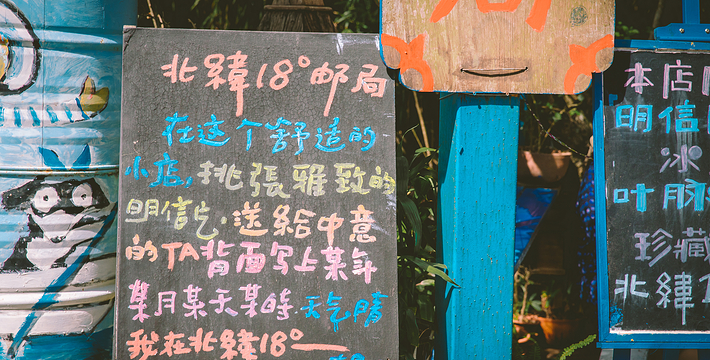 北緯18°邮局
在这个舒适的
小店,挑張雅致的
明信片.送給中意
的TA背面写上某年
某月某天某時.天气晴
我在北緯18°一
本店
明信
冰
叶脉
珍藏
北緯